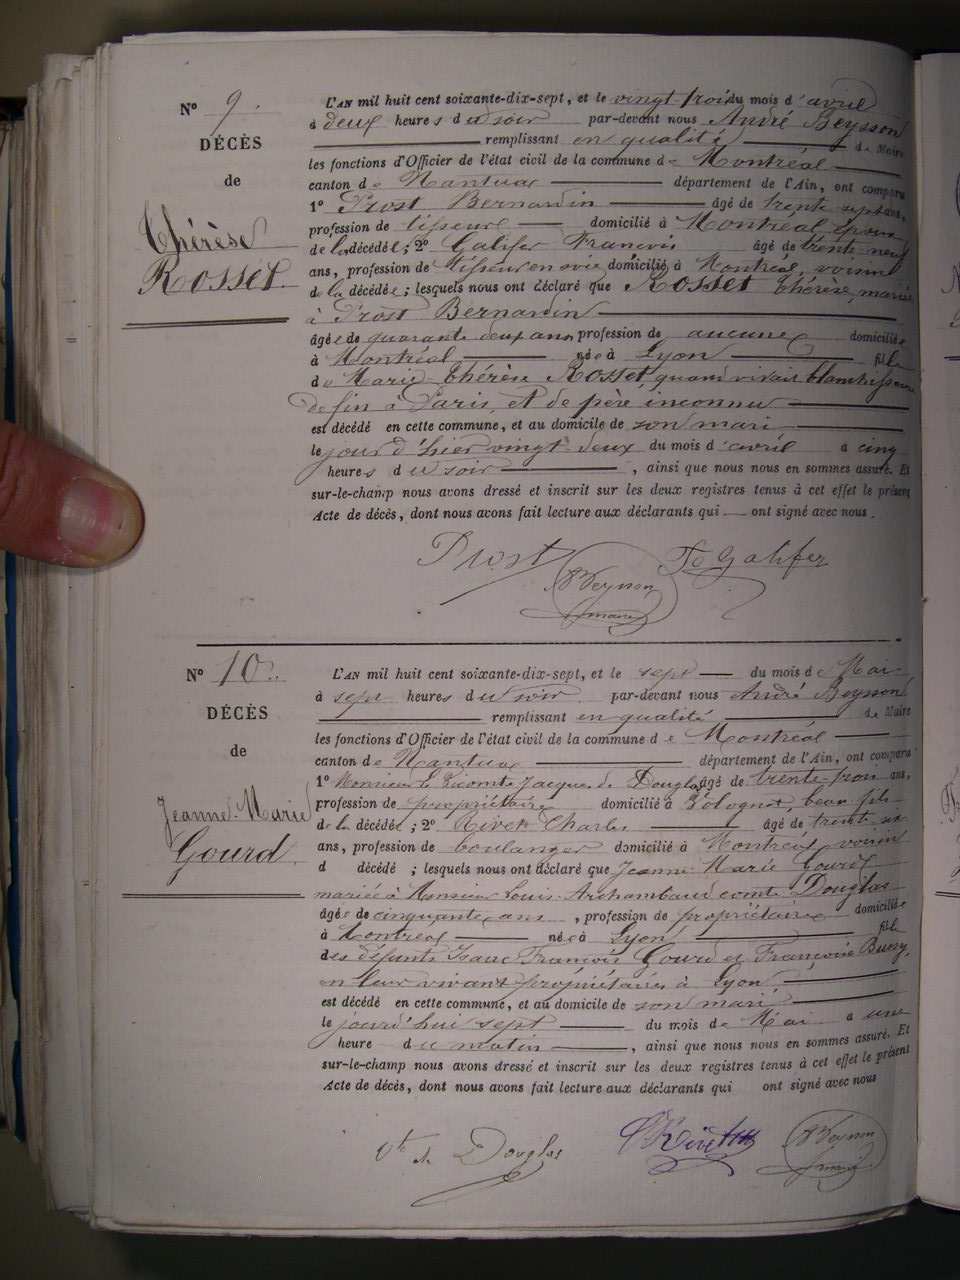 N° 9.
DÉCÈS
de
Thérèse
Rosset.
L'AN mil huit cent soixante-dix-sept, et le vingt-trois du mois d'avril
à deux heures du soir par-devant nous André Beysson
remplissant en qualité de Maire
les fonctions d'Officier de l'état civil de la commune de Montréal
canton de Nantua département de l'Ain, ont comparu
1° Prost Bernardin âgé de trente sept ans,
profession de tisseur domicilié à Montréal, époux
de la décédée; 2° Galifer François âgé de trente neuf
ans, profession de tisseur en soie domicilié à Montréal, voisin
de la décédée; lesquels nous ont déclaré que Rosset Thérèse, mariée
à Prost Bernardin
âgée de quarante deux ans profession de aucune domiciliée
à Montréal née à Lyon fille
de Marie Thérèse Rosset, quand vivait blanchisseuse
de fin à Paris, et de père inconnu
est décédé en cette commune, et au domicile de son mari
le jour d'hier vingt deux du mois d'avril à cinq
heures du soir, ainsi que nous nous en sommes assuré. Et
sur-le-champ nous avons dressé et inscrit sur les deux registres tenus à cet effet le présent
Acte de décès, dont nous avons fait lecture aux déclarants qui ont signé avec nous.
Prost Galifer
Beysson
maire
N° 10.
DÉCÈS
de
Jeanne-Marie
Gourd.
L'AN mil huit cent soixante-dix-sept, et le sept du mois de Mai
à sept heures du soir par-devant nous André Beysson
remplissant en qualité de Maire
les fonctions d'Officier de l'état civil de la commune de Montréal
canton de Nantua département de l'Ain, ont comparu
1° Monsieur le Vicomte Jacques de Douglas âgé de trente-trois ans,
profession de propriétaire domicilié à beau fils
de la décédée; 2° Rivet Charles âgé de trente six
ans, profession de boulanger domicilié à Montréal voisin
d décédé; lesquels nous ont déclaré que Jeanne Marie Gourd
mariée à Monsieur Louis Archambaud comte Douglas
âgée de cinquante ans, profession de propriétaire domiciliée
à Montréal née à Lyon fille
des défunts Isaac François Gourd et Françoise
en leur vivant propriétaires à Lyon,
est décédé en cette commune, et au domicile de son mari
le jourd'hui sept du mois de Mai à une
heure du matin, ainsi que nous nous en sommes assuré. Et
sur-le-champ nous avons dressé et inscrit sur les deux registres tenus à cet effet le présent
Acte de décès, dont nous avons fait lecture aux déclarants qui ont signé avec nous
Vte de Douglas Rivet Beysson
maire